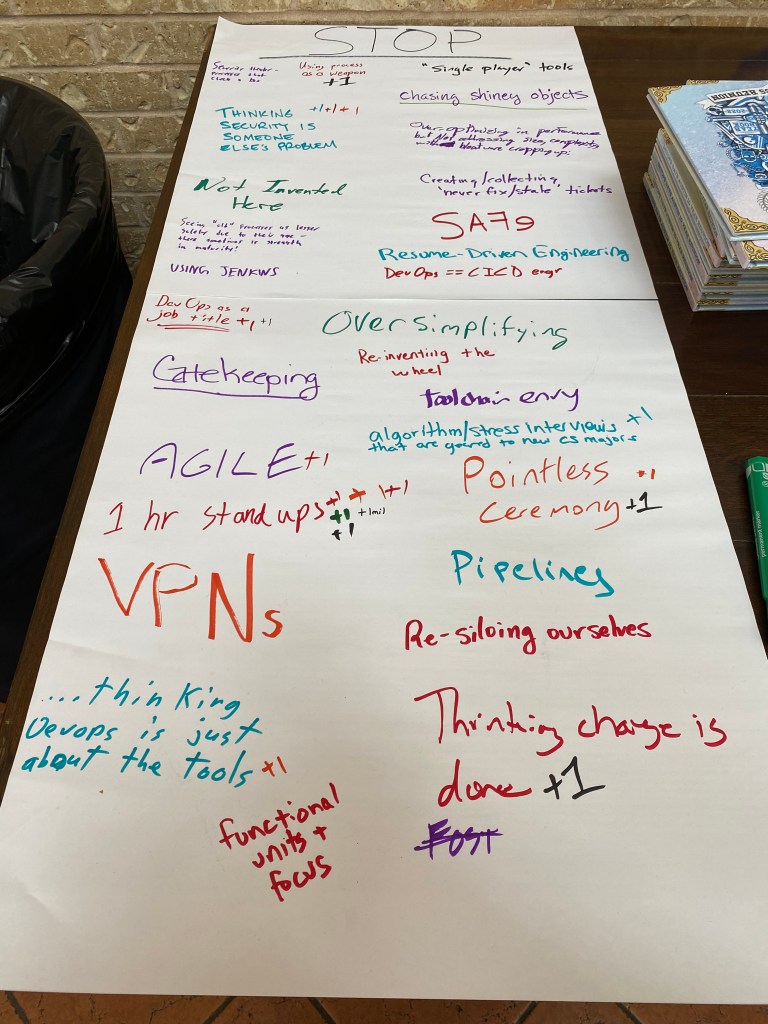 STOP
Security theater -
processes that
check a box
Using process
as a weapon
+1
"Single player" tools
chasing shiney objects
THINKING +1+1+1
SECURITY IS
SOMEONE
ELSE'S PROBLEM
Over-optimizing in performance
but not addressing
Not Invented
Here
Creating/collecting
'never fix/stale' tickets
Seeing "old" processes as lesser
solely due to their age -
there sometimes is strength
in maturity!
SAFe
Resume-Driven Engineering
USING JENKINS
DevOps == CICD engr
DevOps as a
job title +1 +1
Oversimplifying
Re-inventing the
wheel
Gatekeeping
toolchain envy
algorithm/stress interviews +1
that are geared to new CS majors
AGILE +1
Pointless +1
ceremony +1
1 hr stand ups +1 + 1+1
+1 +1mil
+1
VPNs
Pipelines
Re-siloing ourselves
...thinking
Devops is just
about the tools +1
Thinking change is
done +1
functional
units +
focus